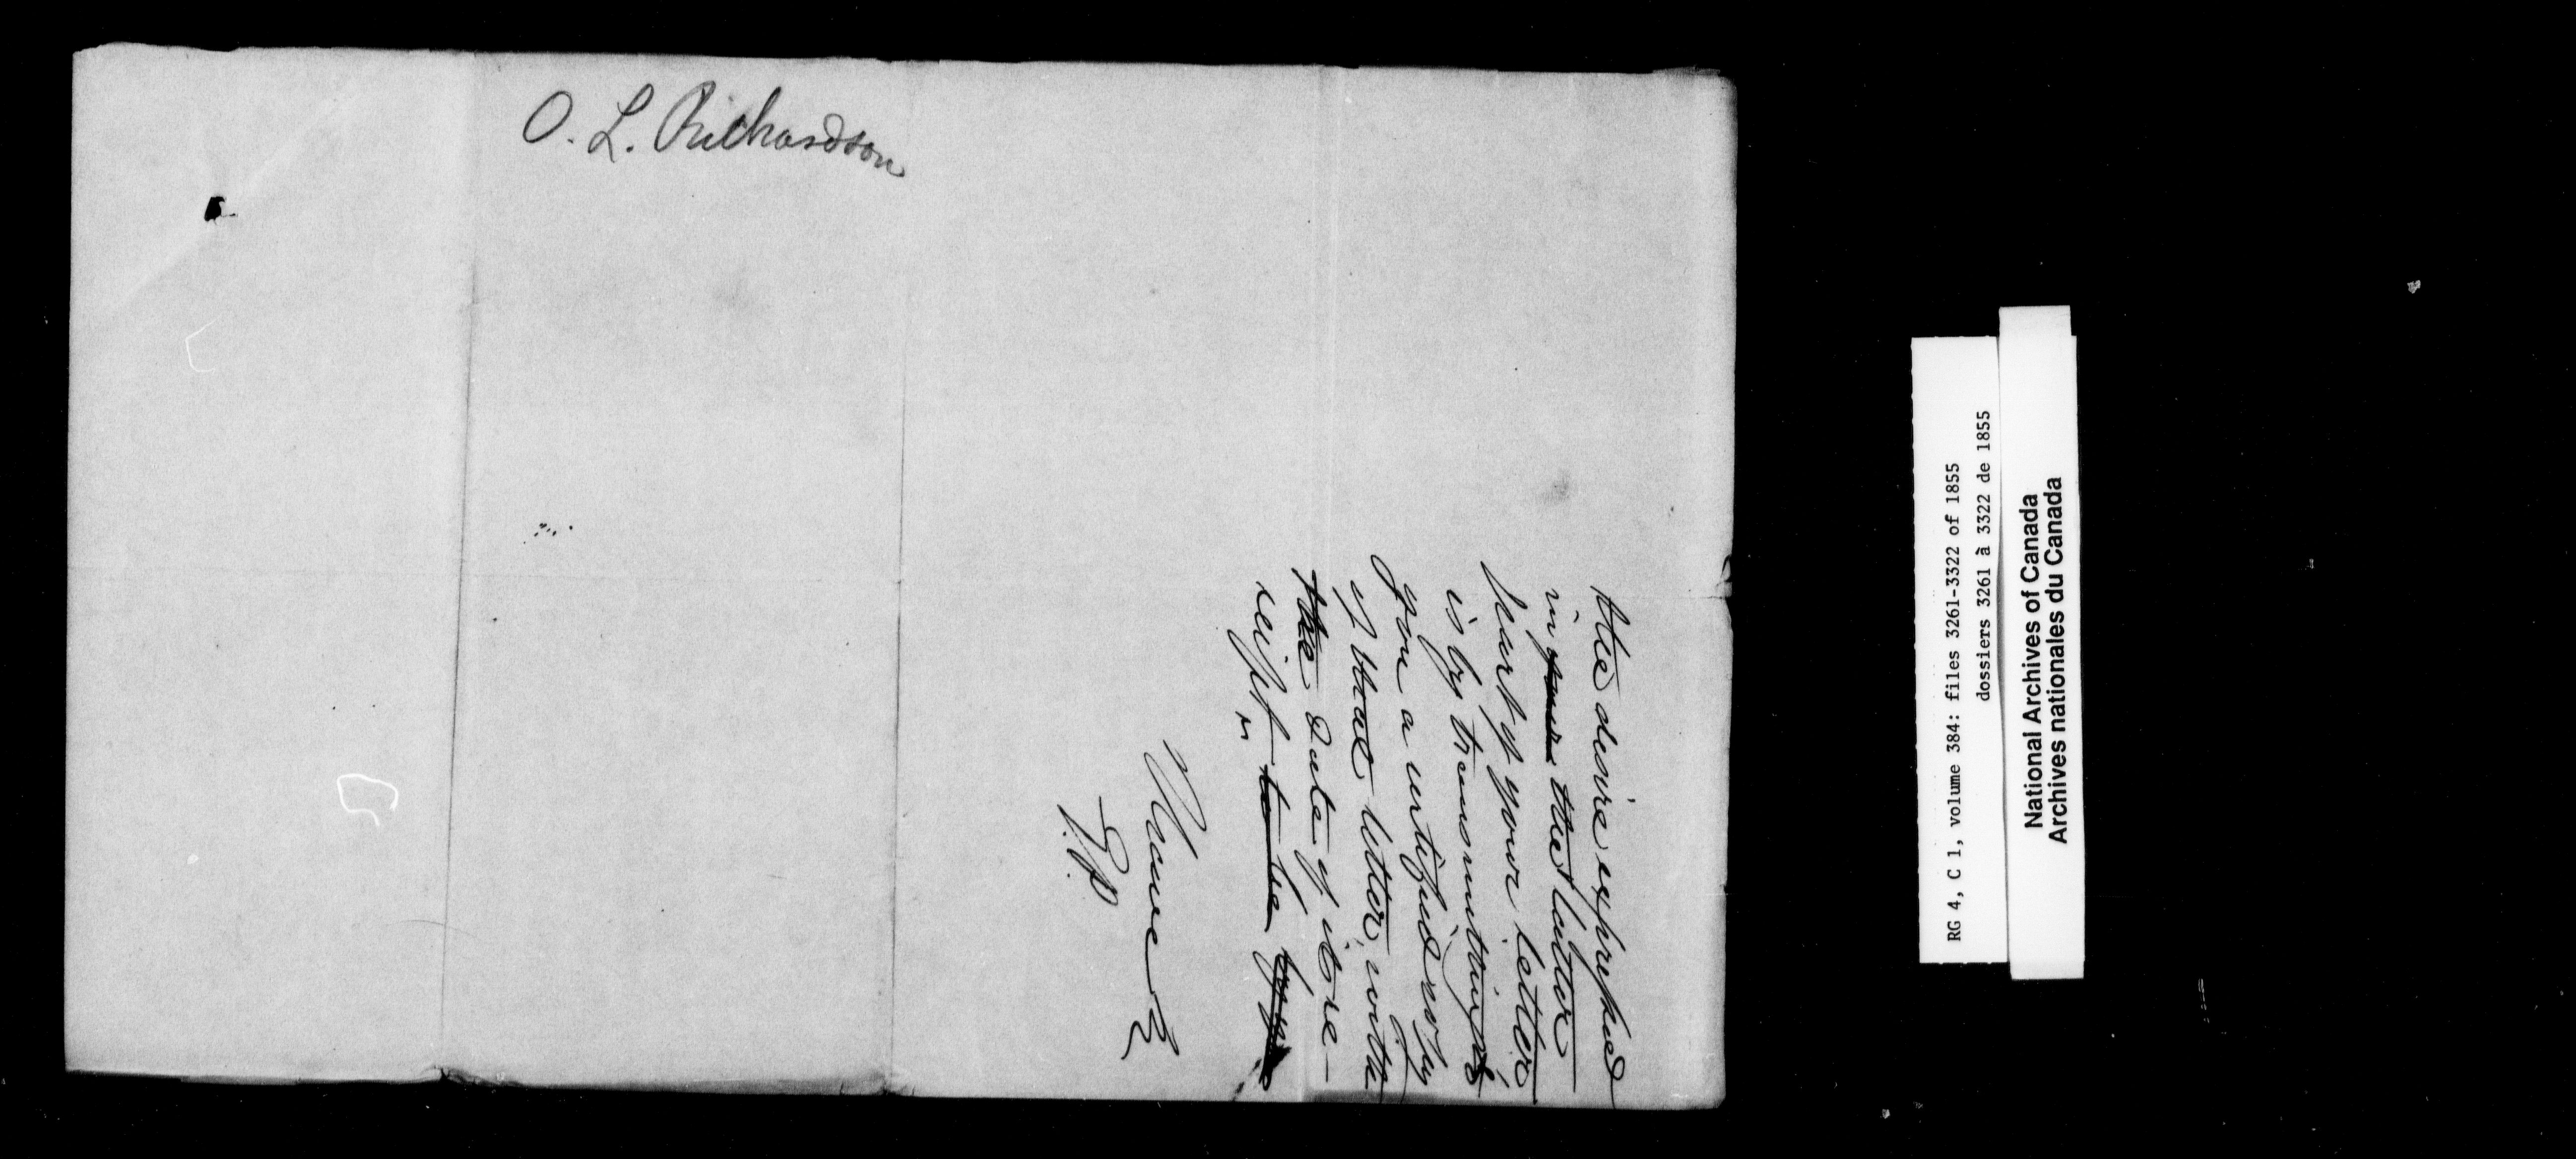 O. L. Richardson
the desire expressed
in the latter
part of your letter
is by transmitting
you a certified copy
of that letter, with
the date of its re-
ceipt to be
RG 4, C 1, volume 384: files 3261-3322 of 1855
dossiers 3261 à 3322 de 1855
National Archives of Canada
Archives nationales du Canada